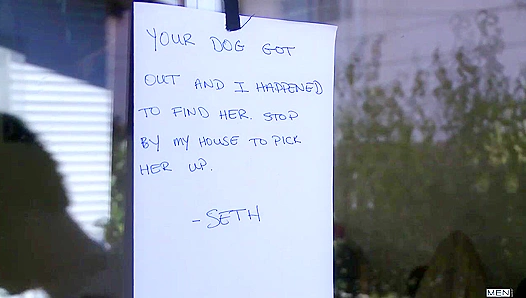 YOUR DOG GOT
OUT AND I HAPPENED
TO FIND HER. STOP
BY MY HOUSE TO PICK
HER UP.
- SETH
MEN